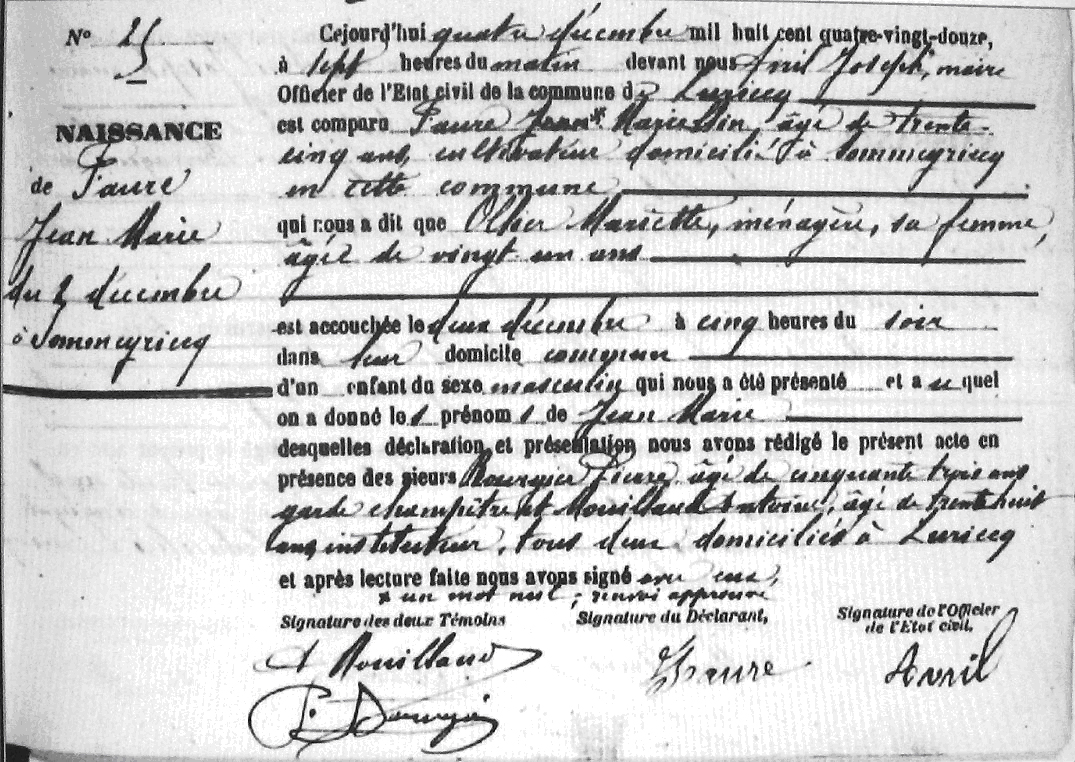 N° 25
NAISSANCE
de Faure
Jean Marie
du 2 décembre
à Sommeyricq
Cejourd'hui quatre décembre mil huit cent quatre-vingt-douze,
à sept heures du matin devant nous Avril Joseph, maire
Officier de l'Etat civil de la commune de Luricq
est comparu Faure Jean Marie âgé de trente-
cinq ans, cultivateur domicilié à Sommeyricq
en cette commune
qui nous a dit que Ollier Mariette, ménagère, sa femme,
âgée de vingt un ans
est accouchée le deux décembre à cinq heures du soir
dans leur domicile commun
d'un enfant du sexe masculin qui nous a été présenté et auquel
on a donné les prénoms de Jean Marie
desquelles déclaration et présentation nous avons rédigé le présent acte en
présence des sieurs Pierre âgé de cinquante trois ans
garde champêtre et Mouilland Antoine, âgé de trente huit
ans instituteur, tous deux domiciliés à Luricq
et après lecture faite nous avons signé avec eux,
x un mot nul ; renvoi approuvé
Signature des deux Témoins
Signature du Déclarant,
Signature de l'Officier
de l'Etat civil.
A Mouilland
Faure
Avril
P.